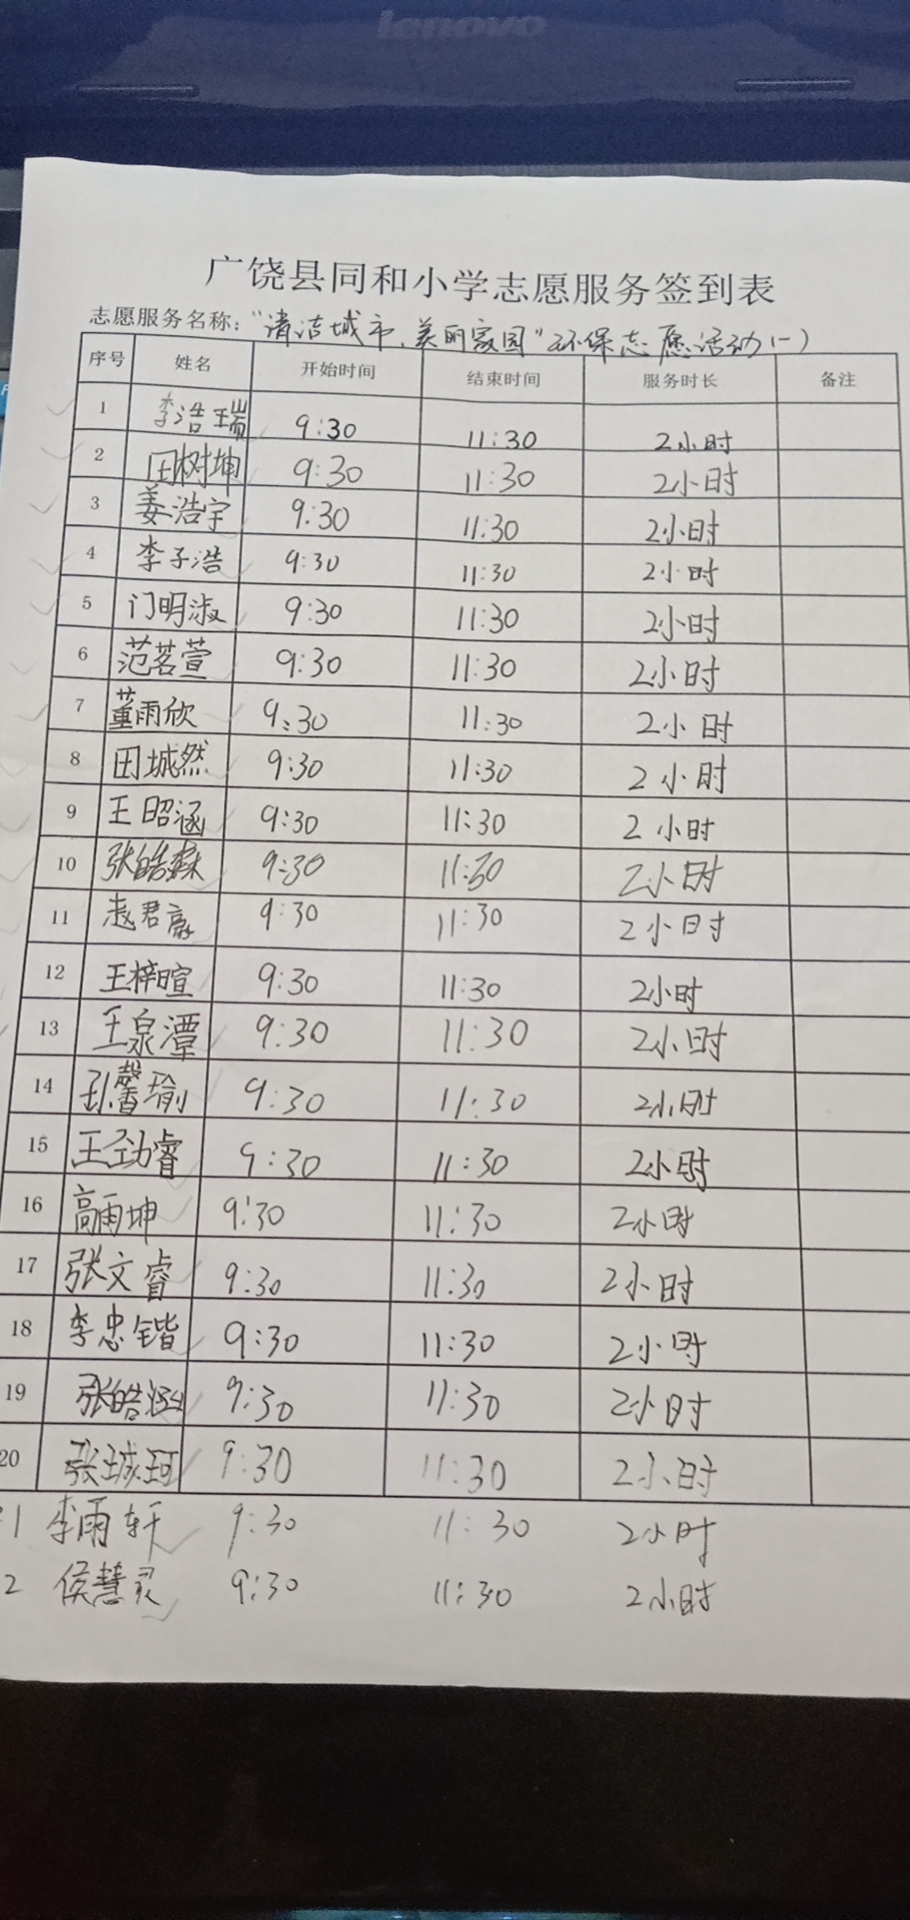 lenovo
广饶县同和小学志愿服务签到表
志愿服务名称：“清洁城市、美丽家园”环保志愿活动(一)
序号 姓名 开始时间 结束时间 服务时长 备注
1 李浩瑞 9:30 11:30 2小时
2 田树坤 9:30 11:30 2小时
3 姜浩宇 9:30 11:30 2小时
4 李子浩 9:30 11:30 2小时
5 门明淑 9:30 11:30 2小时
6 范茗萱 9:30 11:30 2小时
7 董雨欣 9:30 11:30 2小时
8 田城然 9:30 11:30 2小时
9 王昭涵 9:30 11:30 2小时
10 张皓森 9:30 11:30 2小时
11 赵君豪 9:30 11:30 2小时
12 王梓暄 9:30 11:30 2小时
13 王泉潭 9:30 11:30 2小时
14 孙馨瑜 9:30 11:30 2小时
15 王劲睿 9:30 11:30 2小时
16 高雨坤 9:30 11:30 2小时
17 张文睿 9:30 11:30 2小时
18 李忠锴 9:30 11:30 2小时
19 张皓涵 9:30 11:30 2小时
20 张珹珂 9:30 11:30 2小时
1 李雨轩 9:30 11:30 2小时
2 侯慧灵 9:30 11:30 2小时